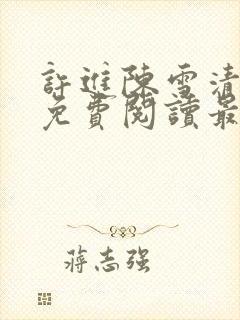 許進陳雪清
免費閱讀最
蔣志强